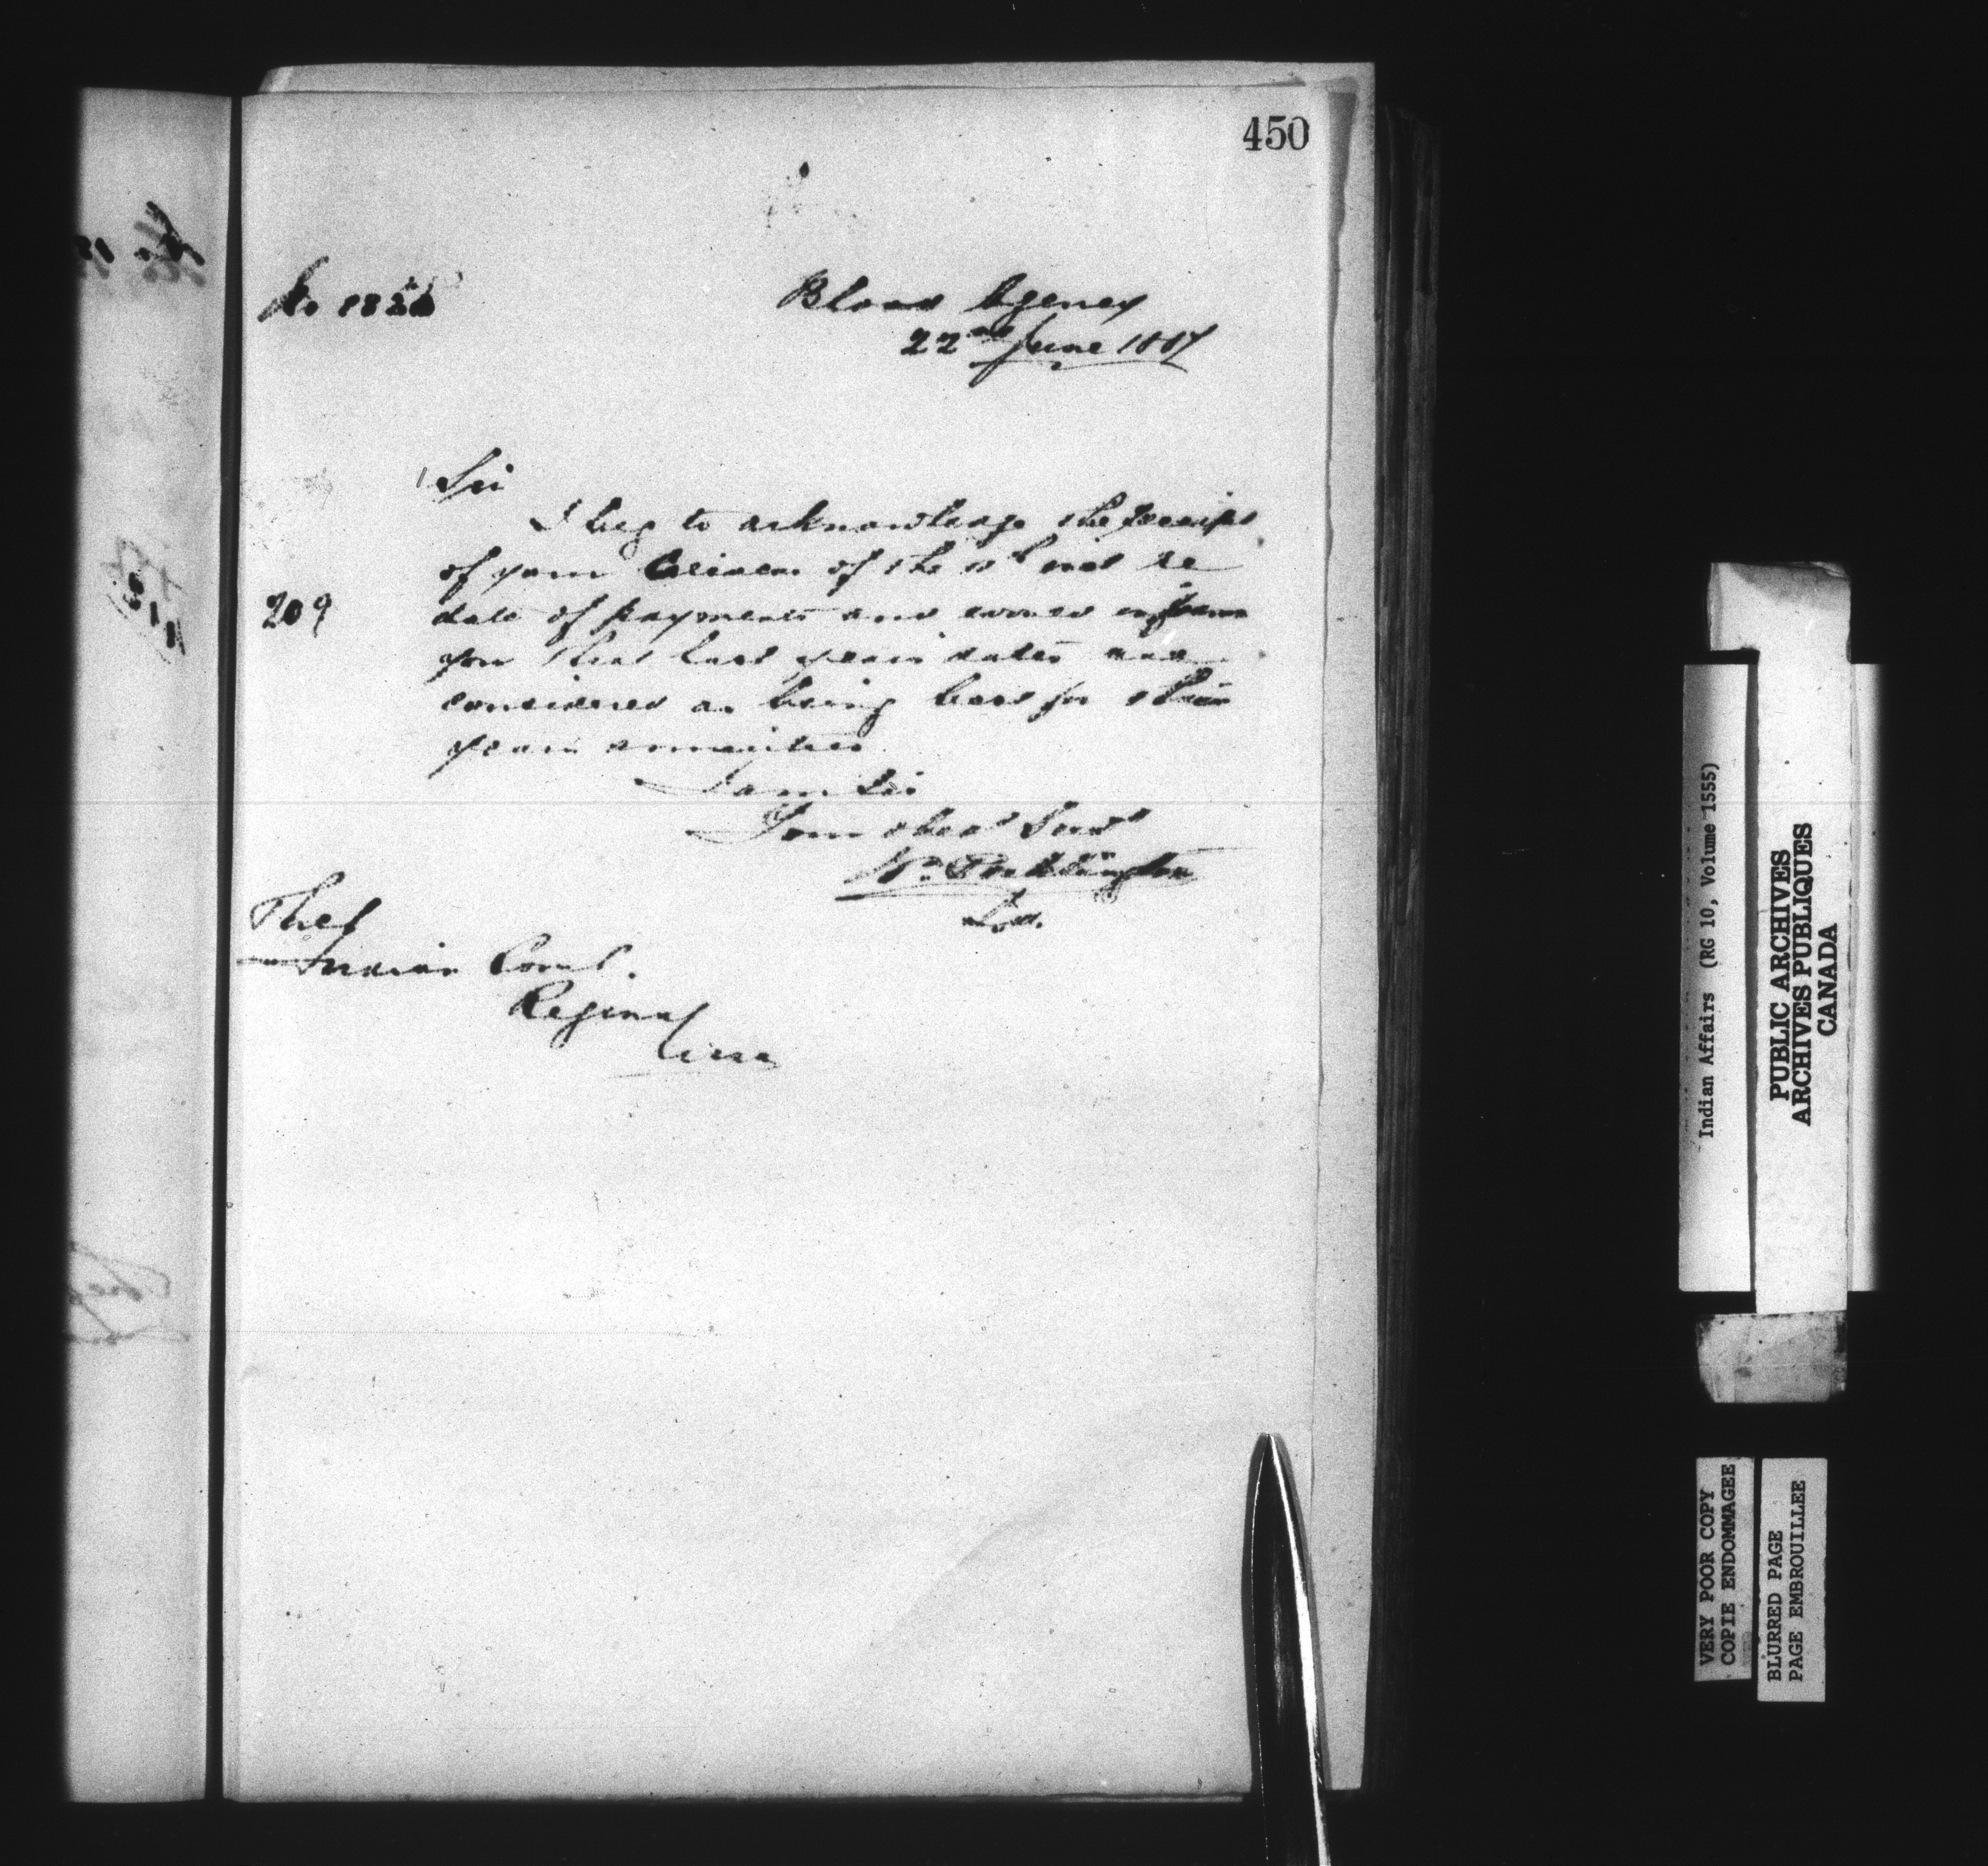 450
Blood Agency
22nd June 1887
Sir
I beg to acknowledge the receipt
of your Circular of the inst re
209
date of payments and would inform
you that last years dates are
considered as being best for this
years annuities
I am Sir
Your obed Servt
Wm Pocklington
The
Indian Coms.
Regina
Assa
Indian Affairs (RG 10, Volume 1555)
PUBLIC ARCHIVES
ARCHIVES PUBLIQUES
CANADA
VERY POOR COPY
COPIE ENDOMMAGEE
BLURRED PAGE
PAGE EMBROUILLEE